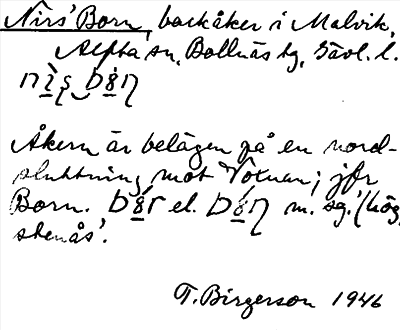 Nirs' Born, backåker i Malvik,
Alfta sn, Bollnäs tg, Gävl. l.
Åkern är belägen på en nord-
sluttning mot Voxnan; jfr
Born. el. m. sg. '(hög,
stenås'.
T. Birgerson 1946